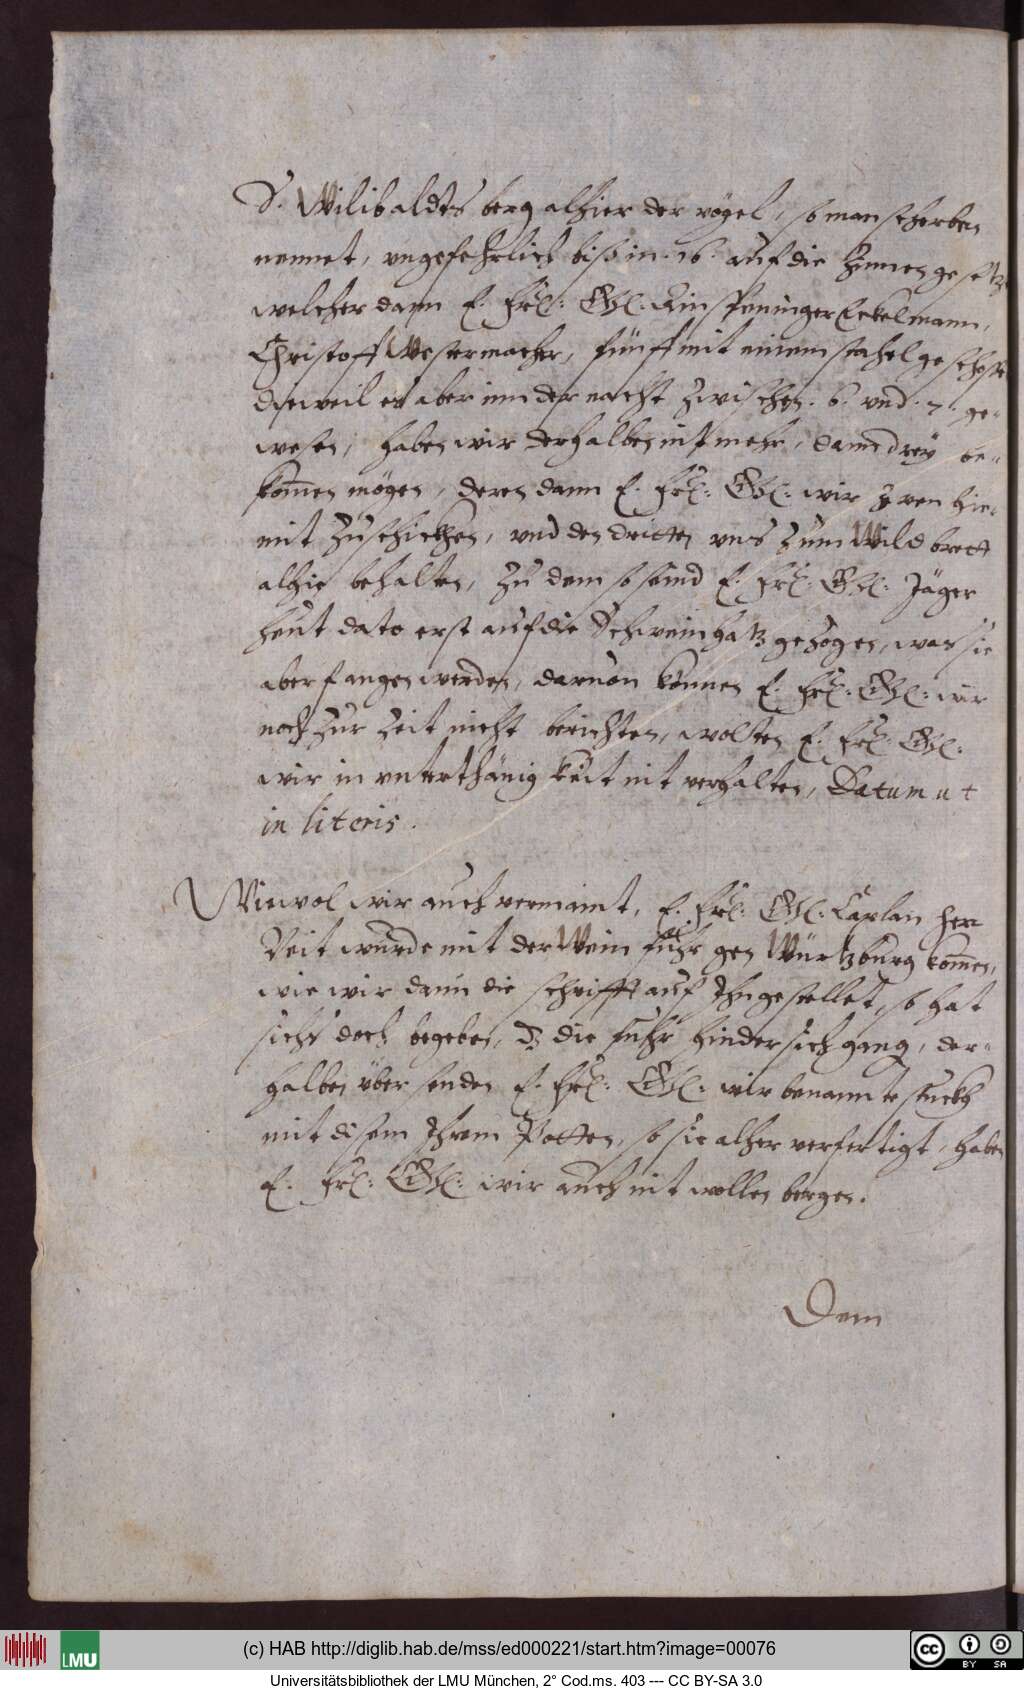 S. Wilibaldts berg alhier der vögel, so man scharben
nennet, ungefehrlich biß in .16. auf die Zinnen gesetzt
welcher dann E. Frl: Gl: Einspenninger Eckelmann,
Christoff Westermacher, fünff mit einem stahel geschoss
dieweil es aber inn der nacht zwischen .6. und .7. ge-
wesen, haben wir derhalben nit mehr, dann drey be-
kom̄en mögen, deren dann E. Frl: Gl: wir zwen hie-
mit zuschickhen, und den dritten uns zum Wildbrett
alhie behalten, Zu dem so seind E. Frl: Gl: Jäger
heut dato erst auf die Schweinhatz gezogen, was sie
aber fangen werden, daruon können E. Frl: Gl: wir
noch zur Zeit nicht berichten, wolten E. Frl: Gl:
wir in unterthänigkeit nit verhalten, Datum ut
in literis.
Wiewol wir auch vermaint, E. Frl: Gl: Caplan herr
Veit wurde mit der Wein fuhr gen Würtzburg kom̄en,
wie wir dann die schrifft auf Ihn gestellet, so hat
sichs doch begeben, dz die fuhr hindersich gang, der-
halben übersenden E. Frl: Gl: wir benannte stuckh
mit disem Ihrem Potten, so sie alher verfertigt, haben
E. Frl: Gl: wir auch nit wollen bergen.
Dem
(c) HAB http://diglib.hab.de/mss/ed000221/start.htm?image=00076
LMU
cc BY SA
Universitätsbibliothek der LMU München, 2° Cod.ms. 403 --- CC BY-SA 3.0